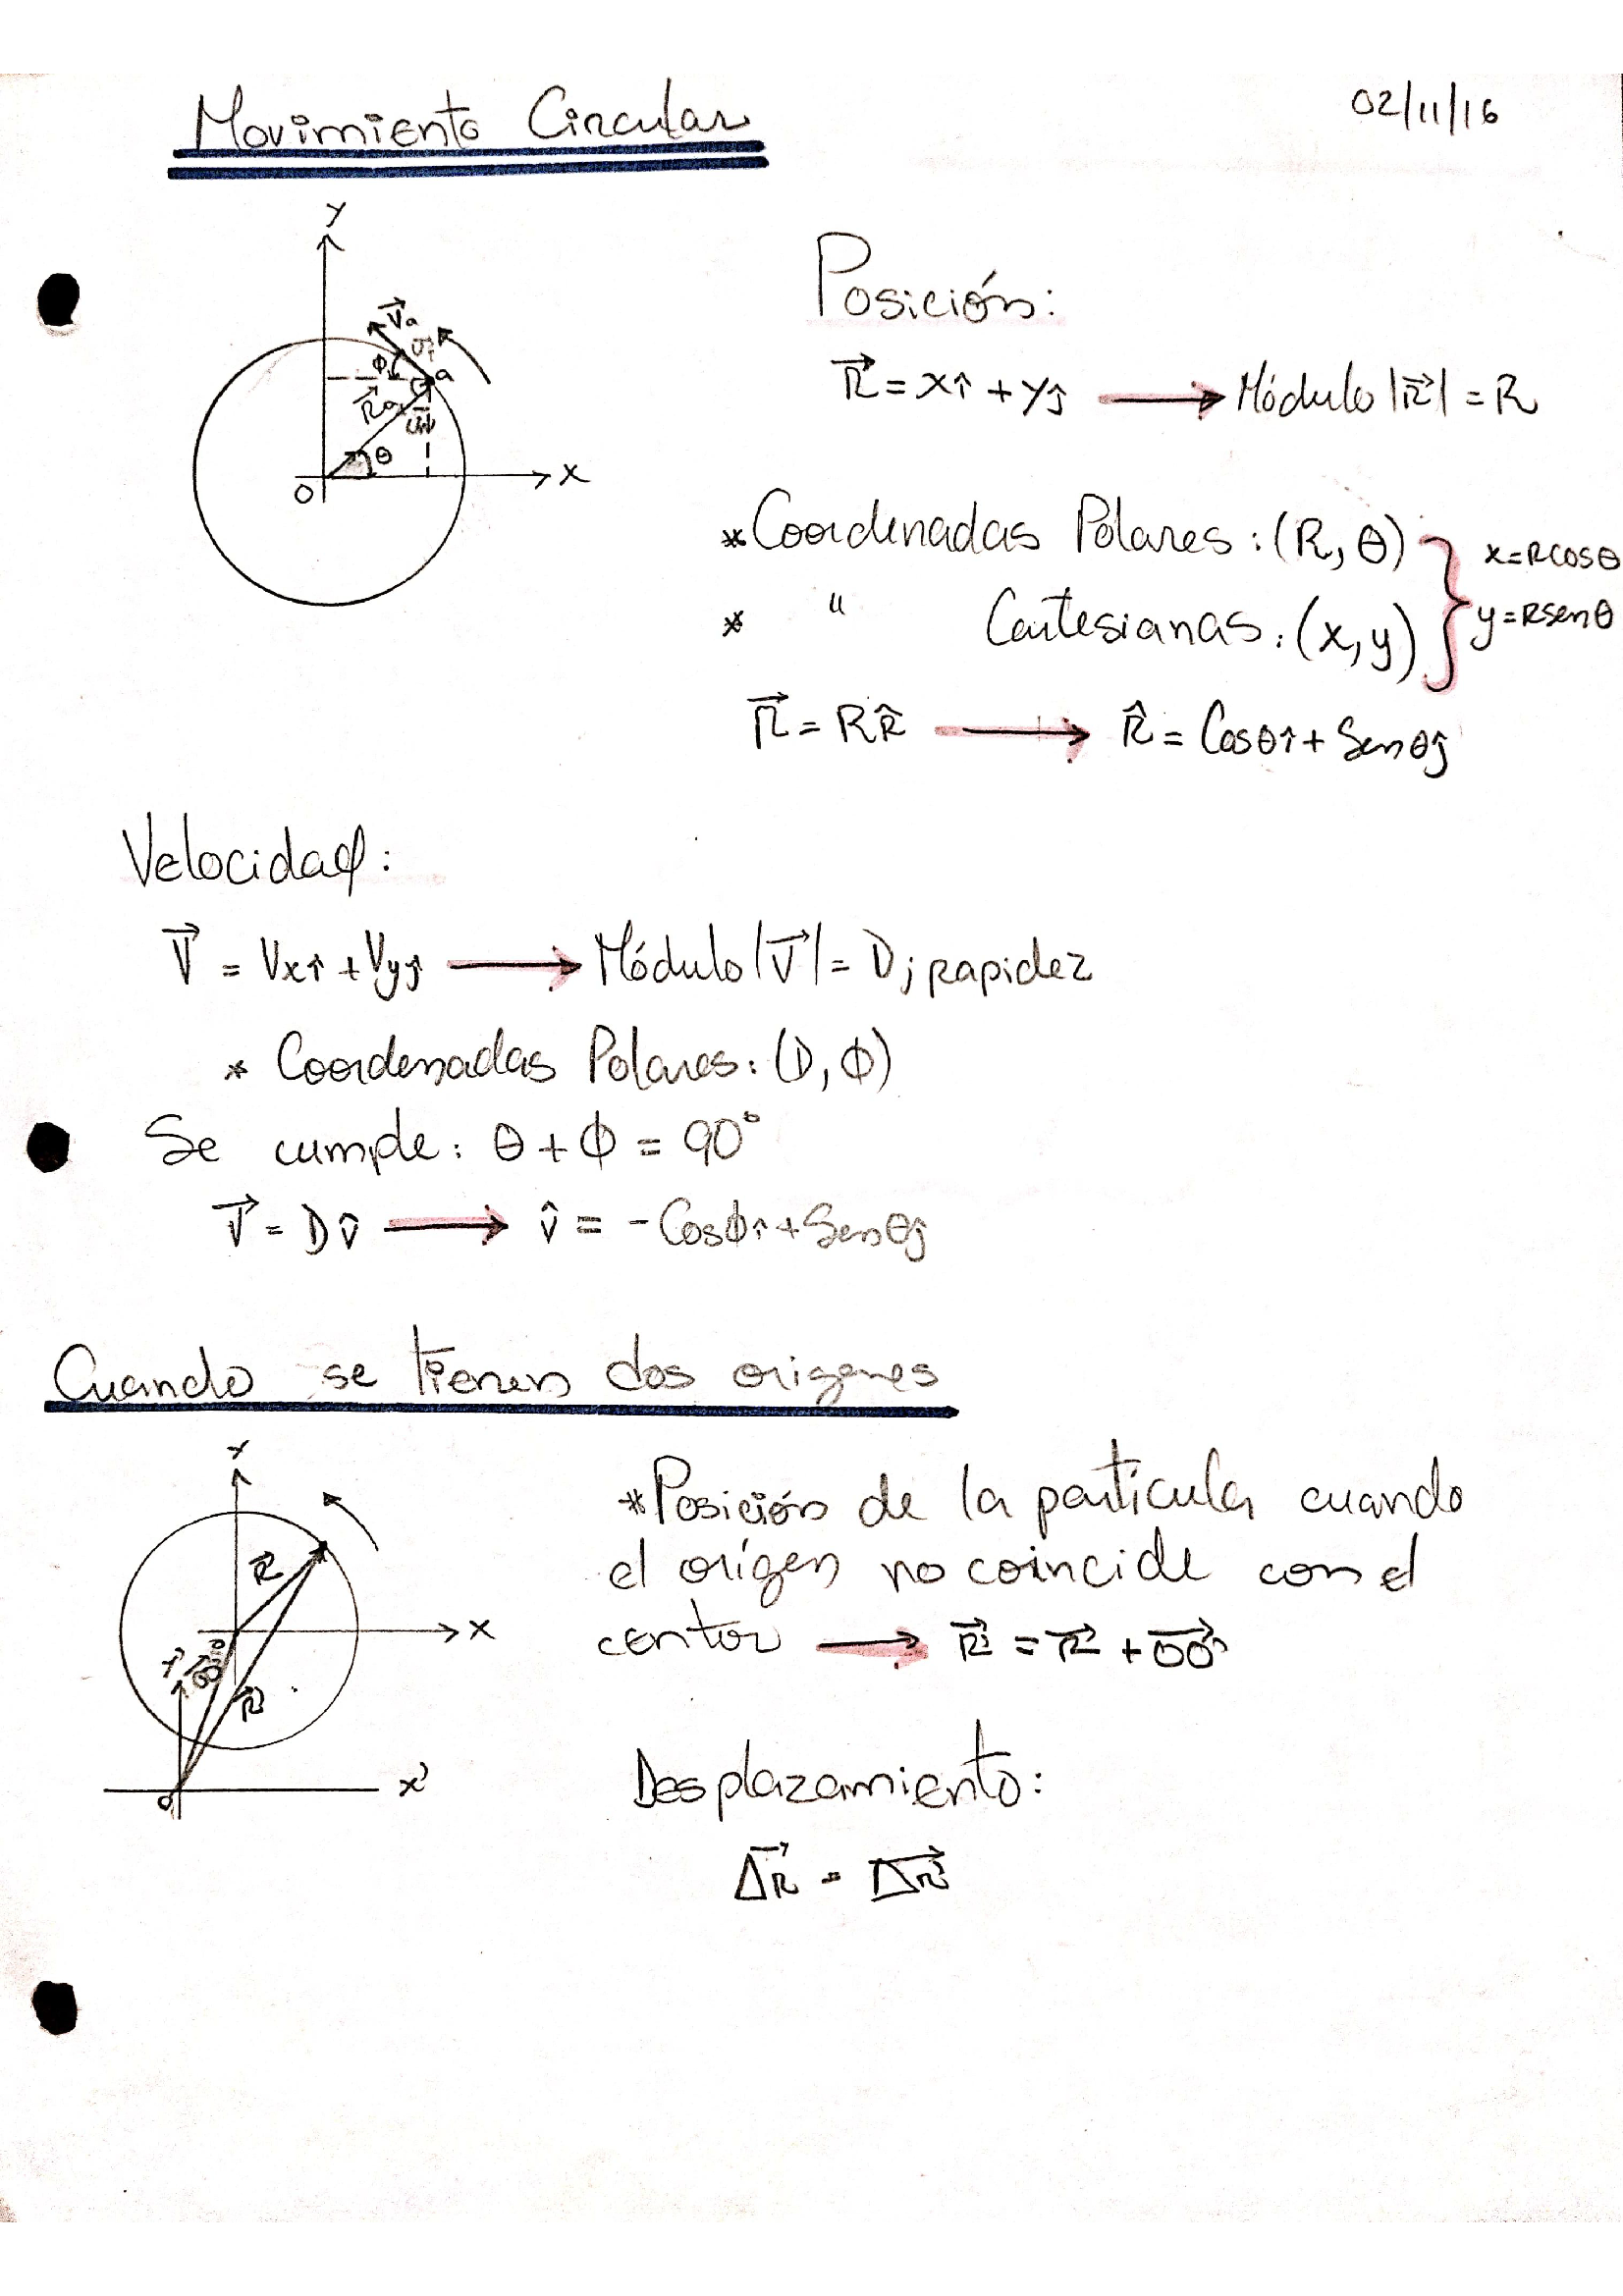 Movimiento Circular
02/11/16
Y
V⃗a
Ûт
ϕ
a
R⃗a
θ
O
X
Posición:
R⃗ = xî + yĵ ⟶ Módulo |R⃗| = R
* Coordenadas Polares: (R, θ)
* " Cartesianas: (x, y)
x = R cos θ
y = R sen θ
R⃗ = R R̂ ⟶ R̂ = Cosθî + Senθĵ
Velocidad:
V⃗ = Vxî + Vyĵ ⟶ Módulo |V⃗| = D; rapidez
* Coordenadas Polares: (D, ϕ)
Se cumple: θ + ϕ = 90°
V⃗ = D v̂ ⟶ v̂ = -Cosϕî + Senθĵ
Cuando se tienen dos origenes
Y
R⃗
X
Y'
OO'
R⃗'
X'
O'
*Posición de la partícula cuando
el orígen no coincide con el
centor ⟶ R⃗' = R⃗ + OO⃗'
Desplazamiento:
ΔR⃗ = ΔR⃗'